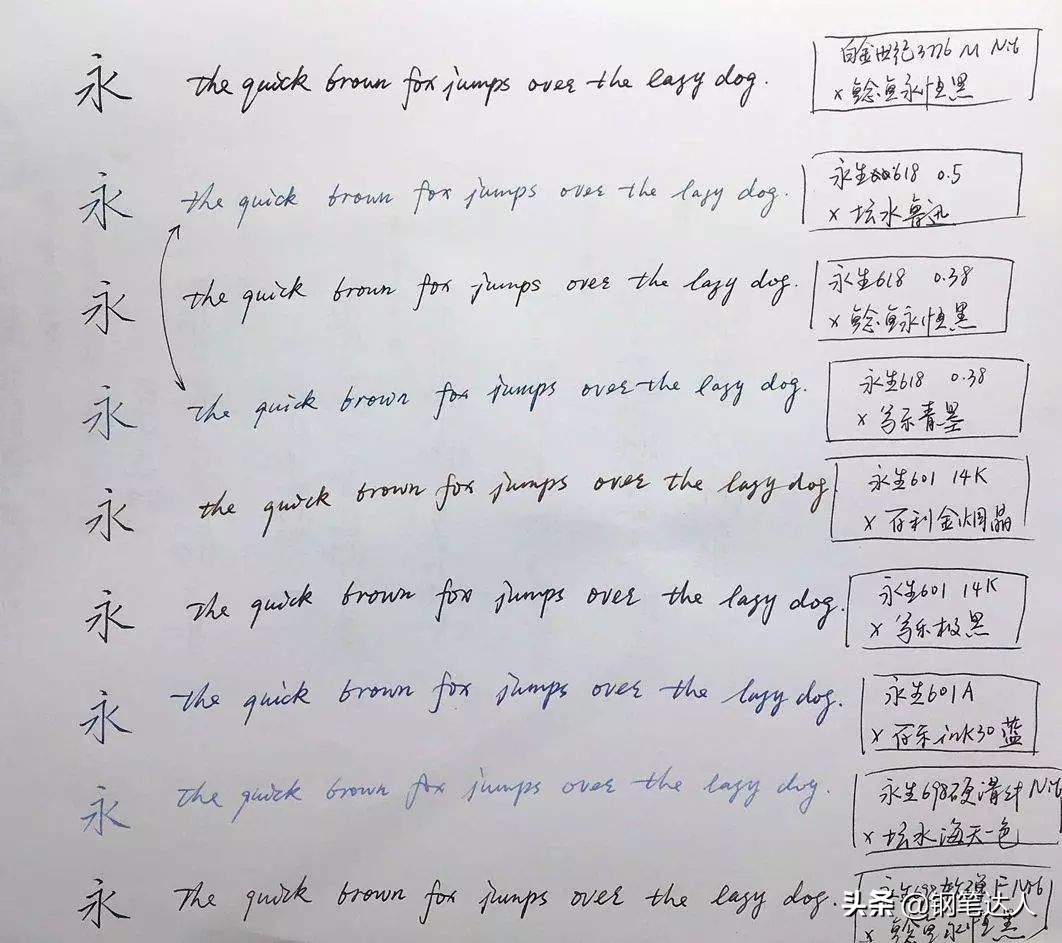 永 the quick brown fox jumps over the lazy dog. 白金世纪3776 M Nib
x 鲶鱼永恒黑
永 the quick brown fox jumps over the lazy dog. 永生618 0.5
x 坛水鲁迅
永 the quick brown fox jumps over the lazy dog. 永生618 0.38
x 鲶鱼永恒黑
永 the quick brown fox jumps over the lazy dog. 永生618 0.38
x 写乐青墨
永 the quick brown fox jumps over the lazy dog 永生601 14K
x 百利金烟晶
永 the quick brown fox jumps over the lazy dog. 永生601 14K
x 写乐极黑
永 the quick brown fox jumps over the lazy dog. 永生601A
x 百乐ink30蓝
永 the quick brown fox jumps over the lazy dog. 永生698硬滑针 Nib
x 坛水海天一色
永 The quick brown fox jumps over the lazy dog. 永生698 F Nib
x 鲶鱼永恒黑
头条 @钢笔达人